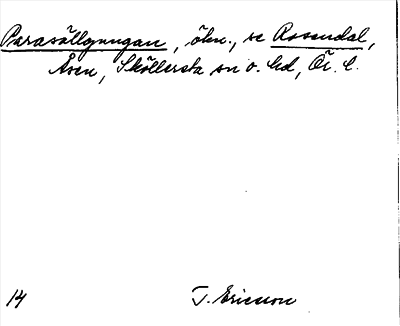 Parasällgungan, ökn., se Rosendal,
Åsen, Sköllersta sn o. hd, Ör. l.
14 T. Ericsson